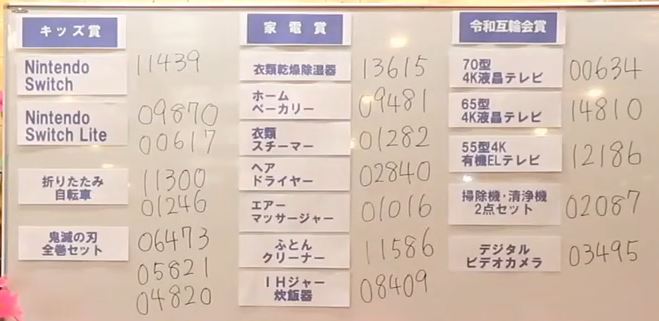 キッズ賞
Nintendo
Switch
11439
Nintendo
Switch Lite
09870
00617
折りたたみ
自転車
11300
01246
鬼滅の刃
全巻セット
06473
05821
04820
家電賞
衣類乾燥除湿器
13615
ホーム
ベーカリー
09481
衣類
スチーマー
01282
ヘア
ドライヤー
02840
エアー
マッサージャー
01016
ふとん
クリーナー
11586
IHジャー
炊飯器
08409
令和互輪会賞
70型
4K液晶テレビ
00634
65型
4K液晶テレビ
14810
55型4K
有機ELテレビ
12186
掃除機・清浄機
2点セット
02087
デジタル
ビデオカメラ
03495